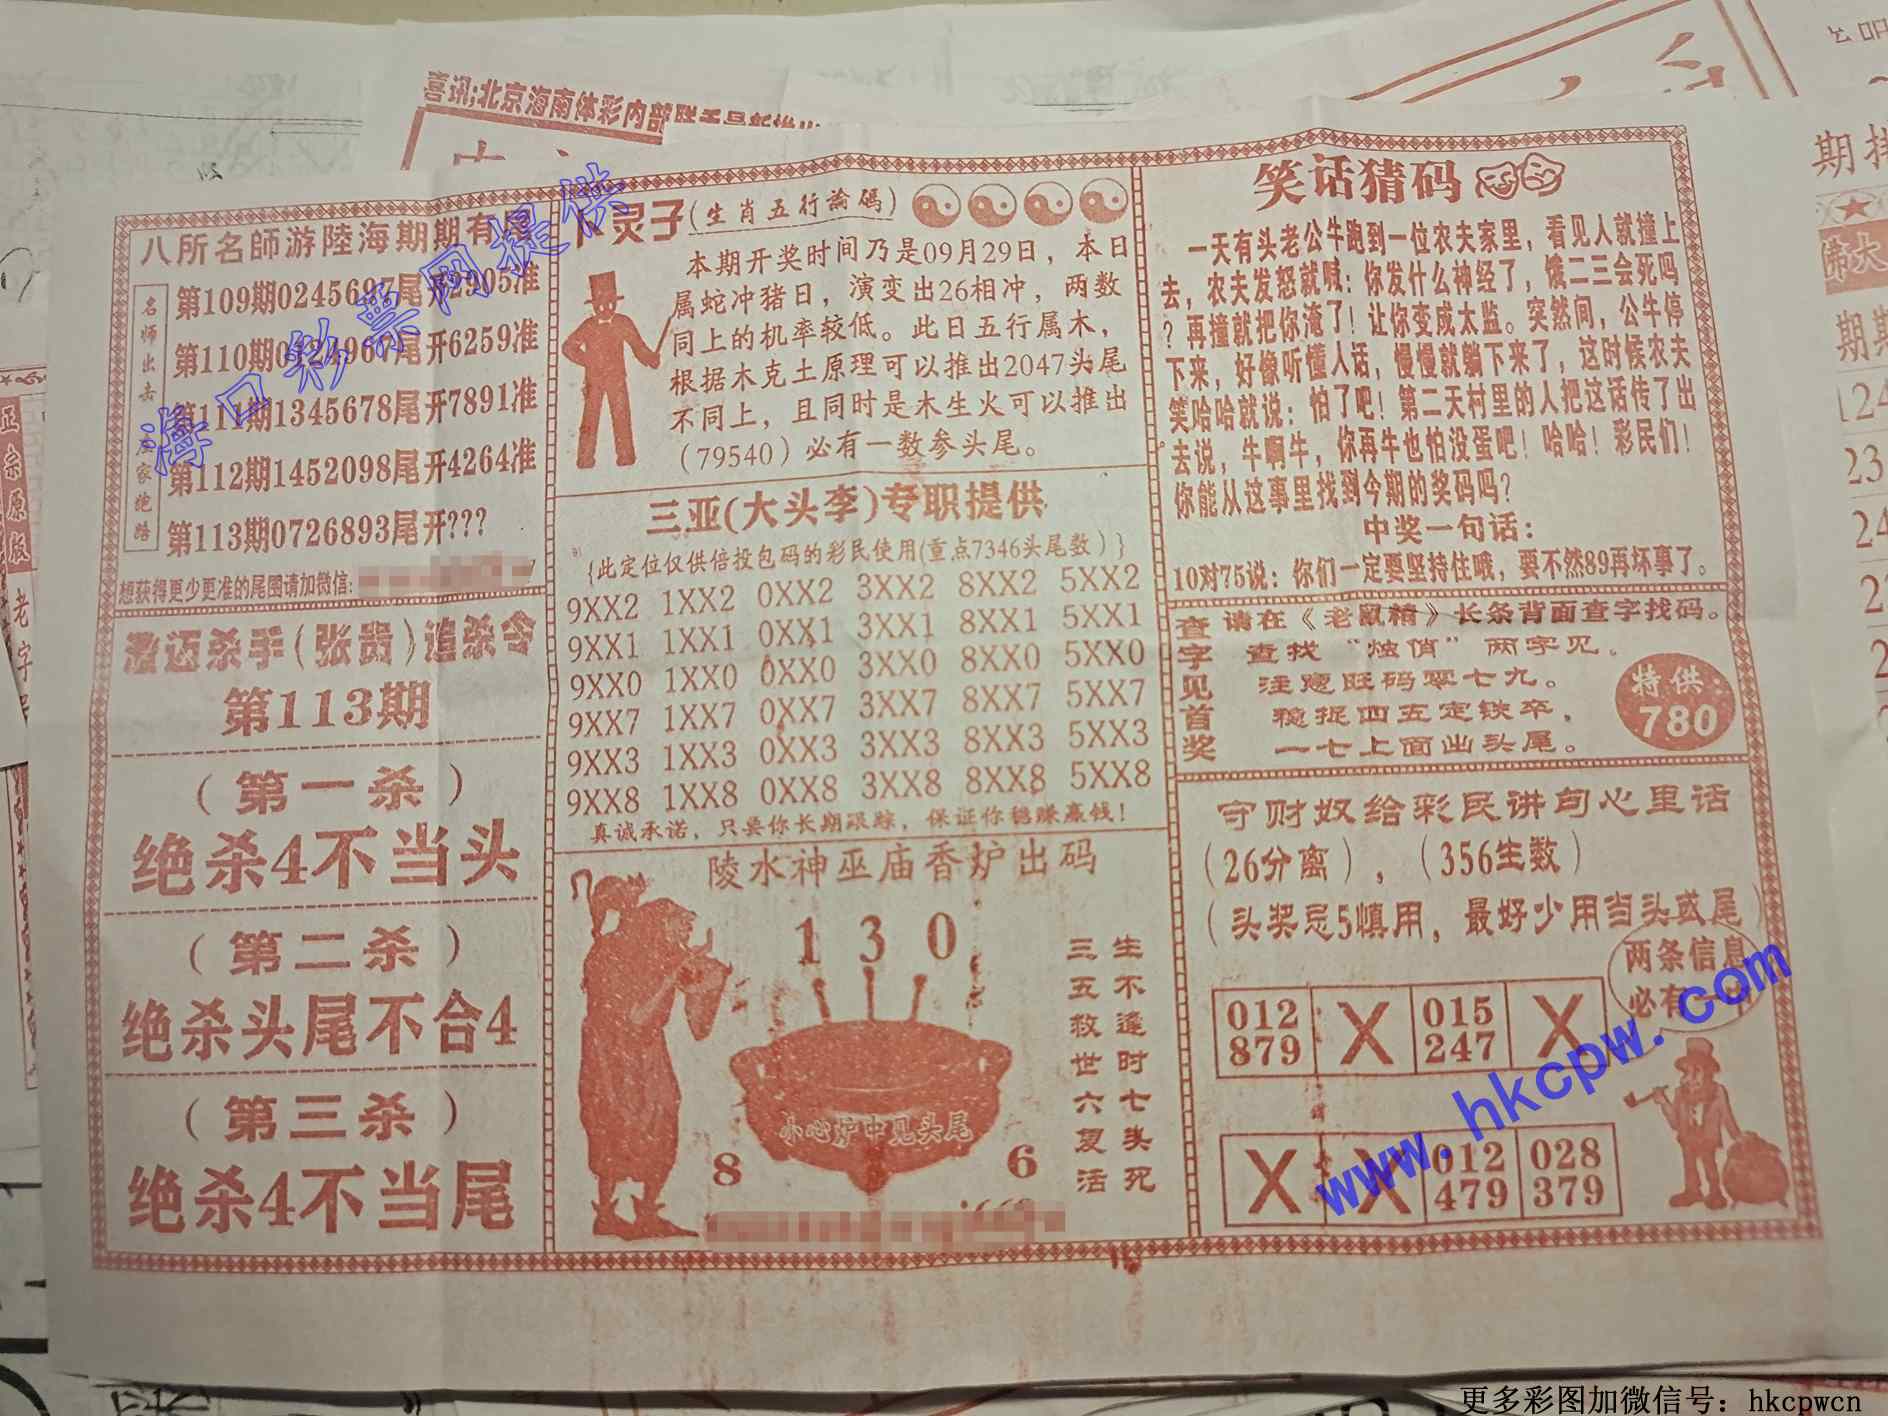 喜讯;北京海南体彩内部
八所名師游陸海期期有尾
名师出击
庄家绝路
第109期0245697尾开2905准
第110期 尾开6259准
第111期1345678尾开7891准
第112期1452098尾开4264准
第113期0726893尾开???
想获得更少更准的尾图请加微信:
澄迈杀手(张贵)追杀令
第113期
(第一杀)
绝杀4不当头
(第二杀)
绝杀头尾不合4
(第三杀)
绝杀4不当尾
卜灵子(生肖五行論碼)
本期开奖时间乃是09月29日，本日
属蛇冲猪日，演变出26相冲，两数
同上的机率较低。此日五行属木，
根据木克土原理可以推出2047头尾
不同上，且同时是木生火可以推出
(79540)必有一数参头尾。
三亚(大头李)专职提供
{此定位仅供倍投包码的彩民使用(重点7346头尾数)}
9XX2 1XX2 0XX2 3XX2 8XX2 5XX2
9XX1 1XX1 0XX1 3XX1 8XX1 5XX1
9XX0 1XX0 0XX0 3XX0 8XX0 5XX0
9XX7 1XX7 0XX7 3XX7 8XX7 5XX7
9XX3 1XX3 0XX3 3XX3 8XX3 5XX3
9XX8 1XX8 0XX8 3XX8 8XX8 5XX8
真诚承诺，只要你长期跟踪，保证你稳赚赢钱!
陵水神巫庙香炉出码
1 3 0
小心炉中见头尾
8 6
生不逢时七头死
三五救世六复活
笑话猜码
一天有头老公牛跑到一位农夫家里，看见人就撞上
去，农夫发怒就喊：你发什么神经了，饿二三会死吗
？再撞就把你淹了！让你变成太监。突然间，公牛停
下来，好像听懂人话，慢慢就躺下来了，这时候农夫
笑哈哈就说：怕了吧！第二天村里的人把这话传了出
去说，牛啊牛，你再牛也怕没蛋吧！哈哈！彩民们！
你能从这事里找到今期的奖码吗？
中奖一句话：
10对75说：你们一定要坚持住哦，要不然89再坏事了。
查字见首奖
请在《老鼠精》长条背面查字找码。
查找“烛俏”两字见。
注意旺码零七九。
稳捉四五定铁卒，
一七上面出头尾。
特供:
780
守财奴给彩民讲句心里话
(26分离)，(356生数)
(头奖忌5慎用，最好少用当头或尾)
两条信息
必有一中
012 X 015 X
879 247
X X 012 028
479 379
海口彩票网提供
www.hkcpw.com
正宗原版
老字
期排
佛大
期期
更多彩图加微信号：hkcpwcn